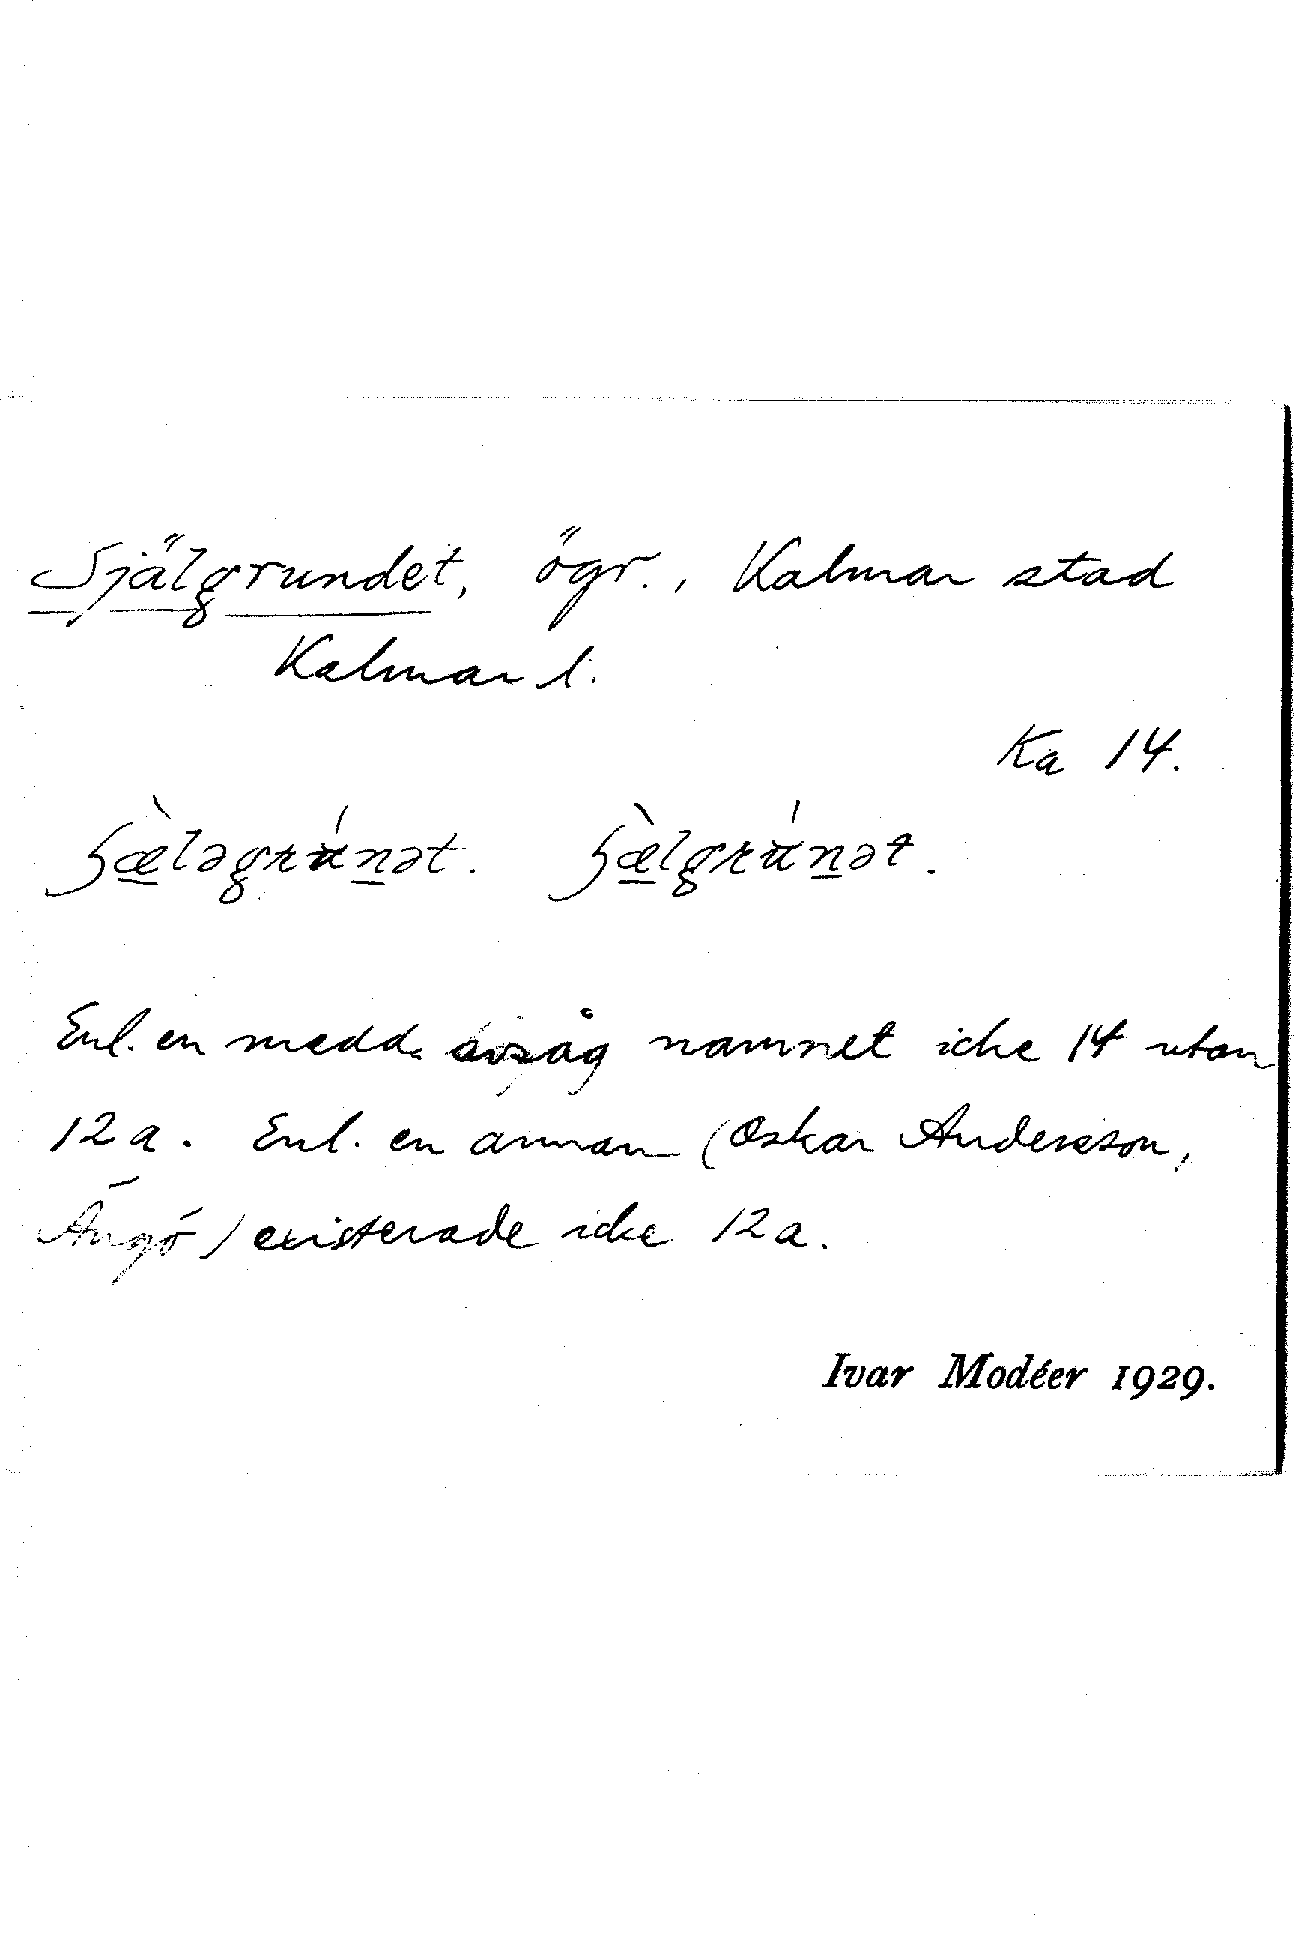 Själgrundet, ögr., Kalmar stad
Kalmar l.
Ka 14.
ʃæ̀ləgrʉ́nət. ʃæ̀lgrʉ́nət.
Enl. en medd. avsåg namnet icke 14 utan
12a. Enl. en annan (Oskar Andersson,
Ängö) existerade icke 12a.
Ivar Modéer 1929.